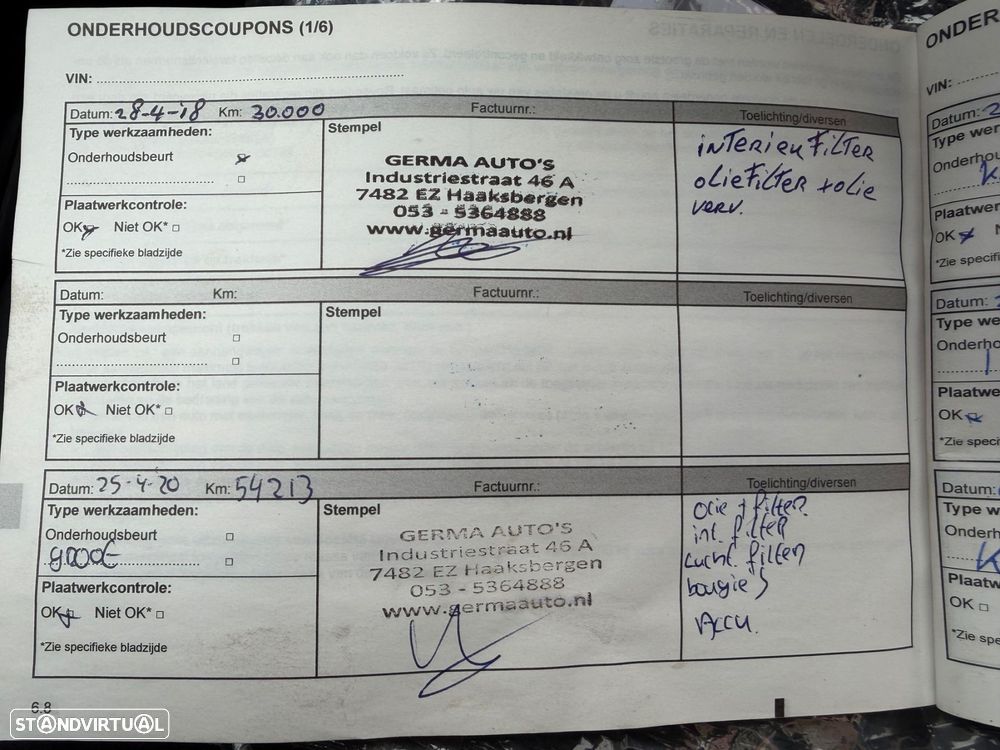 ONDERHOUDSCOUPONS (1/6)
VIN:
Datum: 28-4-18 Km: 30.000 Factuurnr.: Toelichting/diversen
Type werkzaamheden:
Onderhoudsbeurt
Plaatwerkcontrole:
OK Niet OK*
*Zie specifieke bladzijde
Stempel
GERMA AUTO'S
Industriestraat 46 A
7482 EZ Haaksbergen
053 - 5364888
www.germaauto.nl
interieu Filter
olieFilter + olie
verv.
Datum: Km: Factuurnr.: Toelichting/diversen
Type werkzaamheden:
Onderhoudsbeurt
Plaatwerkcontrole:
OK Niet OK*
*Zie specifieke bladzijde
Stempel
Datum: 25-4-20 Km: 54213 Factuurnr.: Toelichting/diversen
Type werkzaamheden:
Onderhoudsbeurt
Plaatwerkcontrole:
OK Niet OK*
*Zie specifieke bladzijde
Stempel
GERMA AUTO'S
Industriestraat 46 A
7482 EZ Haaksbergen
053 - 5364888
www.germaauto.nl
olie + filter
int. filter
Lucht. filter
bougies
Accu.
6.8
STANDVIRTUAL
ONDER
VIN:
Datum: 2
Type wer
Onderhou
Plaatwer
OK
*Zie specifi
Datum:
Type we
Onderho
Plaatwe
OK
*Zie speci
Datum:
Type w
Onderh
Plaatw
OK
*Zie spe